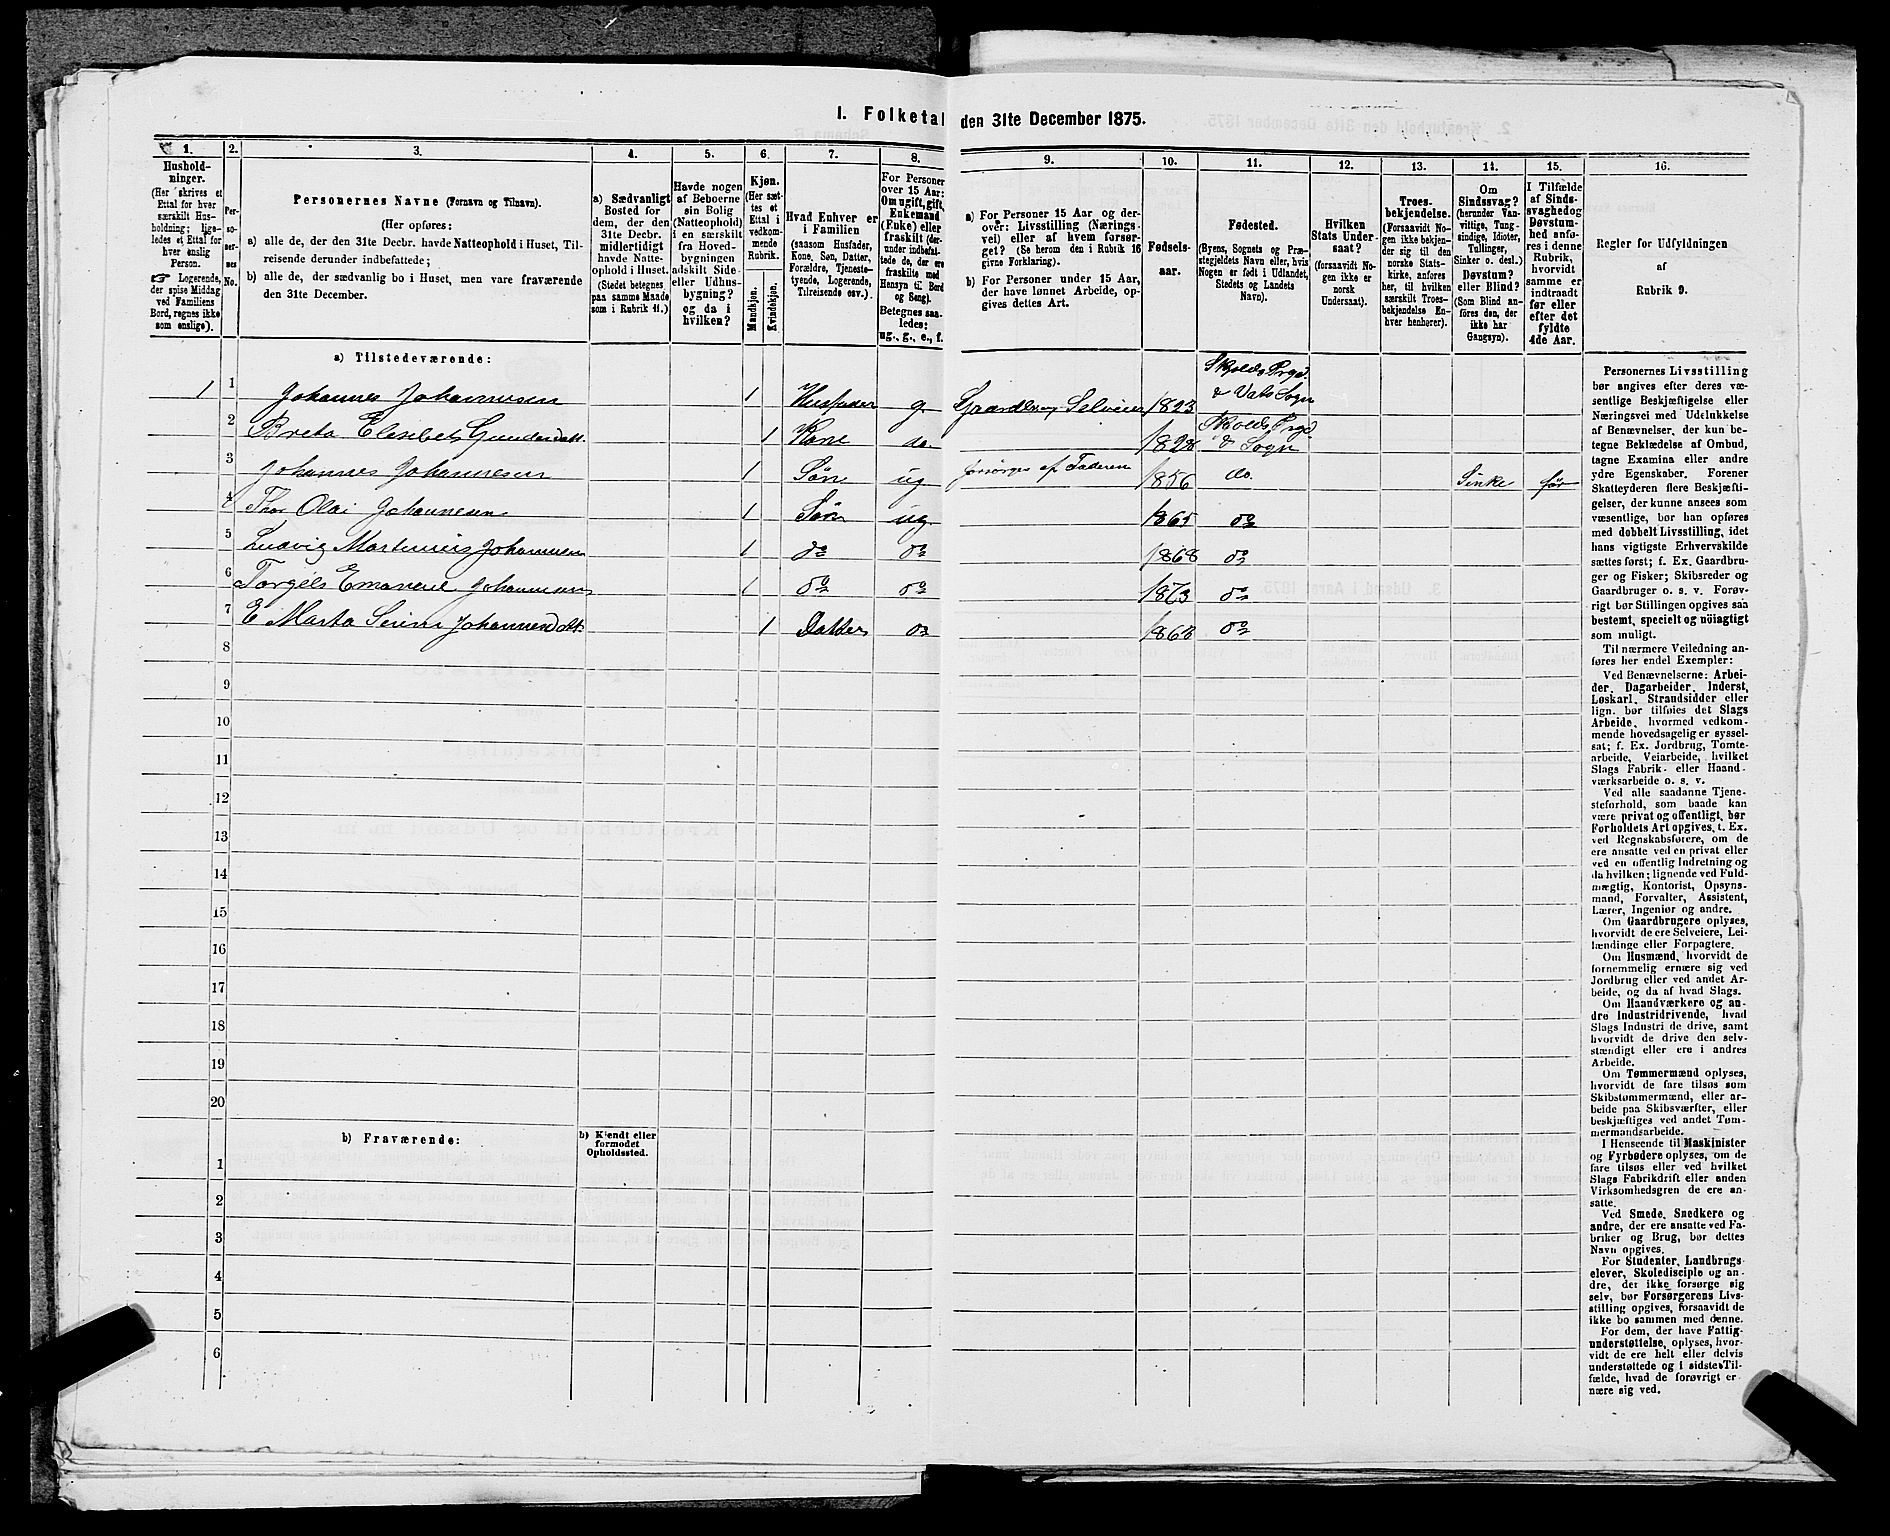 I. Folketal den 31te December 1875.
1.
2.
3.
4.
5.
6.
7.
8.
9.
10.
11.
12.
13.
14.
15.
16.
Hushold-
ninger.
(Her skrives et
Ettal for hver
særskilt Hus-
holdning; lige-
ledes et Ettal for
hver enslig
Person.
☞ Logerende,
der spise Middag
ved Familiens
Bord, regnes ikke
som enslige).
Per-
so-
ner-
nes
No.
Personernes Navne (Fornavn og Tilnavn).
(Her opføres:
a) alle de, der den 31te Decbr. havde Natteophold i Huset, Til-
reisende derunder indbefattede;
b) alle de, der sædvanlig bo i Huset, men vare fraværende
den 31te December.
a) Sædvanligt
Bosted for
dem, der den
31te Decbr.
midlertidigt
havde Natte-
ophold i Huset.
(Stedet betegnes
paa samme Maade
som i Rubrik 11.)
Havde nogen
af Beboerne
sin Bolig
(Natteophold)
i en særskilt
fra Hoved-
bygningen
adskilt Side-
eller Udhus-
bygning?
og da i
hvilken?
Kjøn.
(Her sæt-
tes et
Ettal i
vedkom-
mende
Rubrik.
Mandkjøn.
Kvindekjøn.
Hvad Enhver er
i Familien
(saasom Husfader,
Kone, Søn, Datter,
Forældre, Tjeneste-
tyende, Logerende,
Tilreisende osv.).
For Personer
over 15 Aar:
Om ugift, gift,
Enkemand
(Enke) eller
fraskilt (der-
under indbefat-
tede de, der ere
fraskilte med
Hensyn til Bord
og Seng).
Betegnes saa-
ledes:
ug., g., e., f.
a) For Personer 15 Aar og der-
over: Livsstilling (Nærings-
vei) eller af hvem forsør-
get? (Se herom den i Rubrik 16
givne Forklaring).
b) For Personer under 15 Aar,
der have lønnet Arbeide, op-
gives dettes Art.
Fødsels-
aar.
Fødested.
(Byens, Sognets og Præ-
stegjeldets Navn eller, hvis
Nogen er født i Udlandet,
Stedets og Landets
Navn).
Hvilken
Stats Under-
saat?
(forsaavidt No-
gen ikke er
norsk
Undersaat).
Troes-
bekjendelse.
(Forsaavidt No-
gen ikke bekjen-
der sig til den
norske Stats-
kirke, anføres
her, til hvilken
særskilt Troes-
bekjendelse En-
hver henhører).
Om
Sindssvag?
(herunder Van-
vittige, Tung-
sindige, Idioter,
Tullinger,
Sinker o. desl.)
Døvstum?
eller Blind?
(Som Blind an-
føres den, der
ikke har
Gangsyn).
I Tilfælde
af Sinds-
svaghed og
Døvstum-
hed anfø-
res i denne
Rubrik,
hvorvidt
samme er
indtraadt
før eller
efter det
fyldte
4de Aar.
Regler for Udfyldningen
af
Rubrik 9.
a) Tilstedeværende:
1 1 Johannes Johannesen 1 Husfader g Gaardbr og Selveier 1823 Skjolds Prgd & Vats Sogn
2 Breta Elesibet Gundersdatt. 1 Kone do 1828 Skolds Prgd & Sogn
3 Johannes Johannesen 1 Søn ug forsørges af Faderen 1856 do. Sinke før
4 Thor Olai Johannesen 1 Søn ug 1865 do
5 Ludvig Martinius Johannesen 1 do do 1868 do
6 Torgels Emanuel Johannesen 1 do do 1873 do
7 E Marta Serine Johannesdatt. 1 Datter do 1863 do
8
9
10
11
12
13
14
15
16
17
18
19
20
b) Fraværende:
b) Kjendt eller
formodet
Opholdssted.
1
2
3
4
5
6
Personernes Livsstilling
bør angives efter deres væ-
sentlige Beskjæftigelse eller
Næringsvei med Udelukkelse
af Benævnelser, der kun be-
tegne Beklædelse af Ombud,
tagne Examina eller andre
ydre Egenskaber. Forener
Skatteyderen flere Beskjæfti-
gelser, der kunne ansees som
væsentlige, bør han opføres
med dobbelt Livsstilling, idet
hans vigtigste Erhvervskilde
sættes først; f. Ex. Gaardbru-
ger og Fisker; Skibsreder og
Gaardbruger o. s. v. Forøv-
rigt bør Stillingen opgives saa
bestemt, specielt og nøiagtigt
som muligt.
Til nærmere Veiledning an-
føres her endel Exempler:
Ved Benævnelserne: Arbei-
der, Dagarbeider, Inderst,
Løskarl, Strandsidder eller
lign. bør tilføies det Slags
Arbeide, hvormed vedkom-
mende hovedsagelig er syssel-
sat; f. Ex. Jordbrug, Tomte-
arbeide, Veiarbeide, hvilket
Slags Fabrik- eller Haand-
værksarbeide o. s. v.
Ved alle saadanne Tjene-
steforhold, som baade kan
være privat og offentligt, bør
Forholdets Art opgives, t. Ex.
ved Regnskabsførere, om de
ere ansatte ved en privat eller
ved en offentlig Indretning og
da hvilken; lignende ved Fuld-
mægtig, Kontorist, Opsyns-
mand, Forvalter, Assistent,
Lærer, Ingeniør og andre.
Om Gaardbrugere oplyses,
hvorvidt de ere Selveiere, Lei-
lændinge eller Forpagtere.
Om Husmænd, hvorvidt de
fornemmelig ernære sig ved
Jordbrug eller ved andet Ar-
beide, og da af hvad Slags.
Om Haandværkere og an-
dre Industridrivende, hvad
Slags Industri de drive, samt
hvorvidt de drive den selv-
stændigt eller ere i andres
Arbeide.
Om Tømmermænd oplyses,
hvorvidt de fare tilsøs som
Skibstømmermænd, eller ar-
beide paa Skibsværfter, eller
beskjæftiges ved andet Tøm-
mermandsarbeide.
I Henseende til Maskinister
og Fyrbødere oplyses, om de
fare tilsøs eller ved hvilket
Slags Fabrikdrift eller anden
Virksomhedsgren de ere an-
satte.
Ved Smede, Snedkere og
andre, der ere ansatte ved Fa-
briker og Brug, bør dettes
Navn opgives.
For Studenter, Landbrugs-
elever, Skoledisciple og an-
dre, der ikke forsørge sig
selv, bør Forsørgerens Livs-
stilling opgives, forsaavidt de
ikke bo sammen med denne.
For dem, der have Fattig-
understøttelse, oplyses, hvor-
vidt de ere helt eller delvis
understøttede og i sidste Til-
fælde, hvad de forøvrigt er-
nære sig ved.